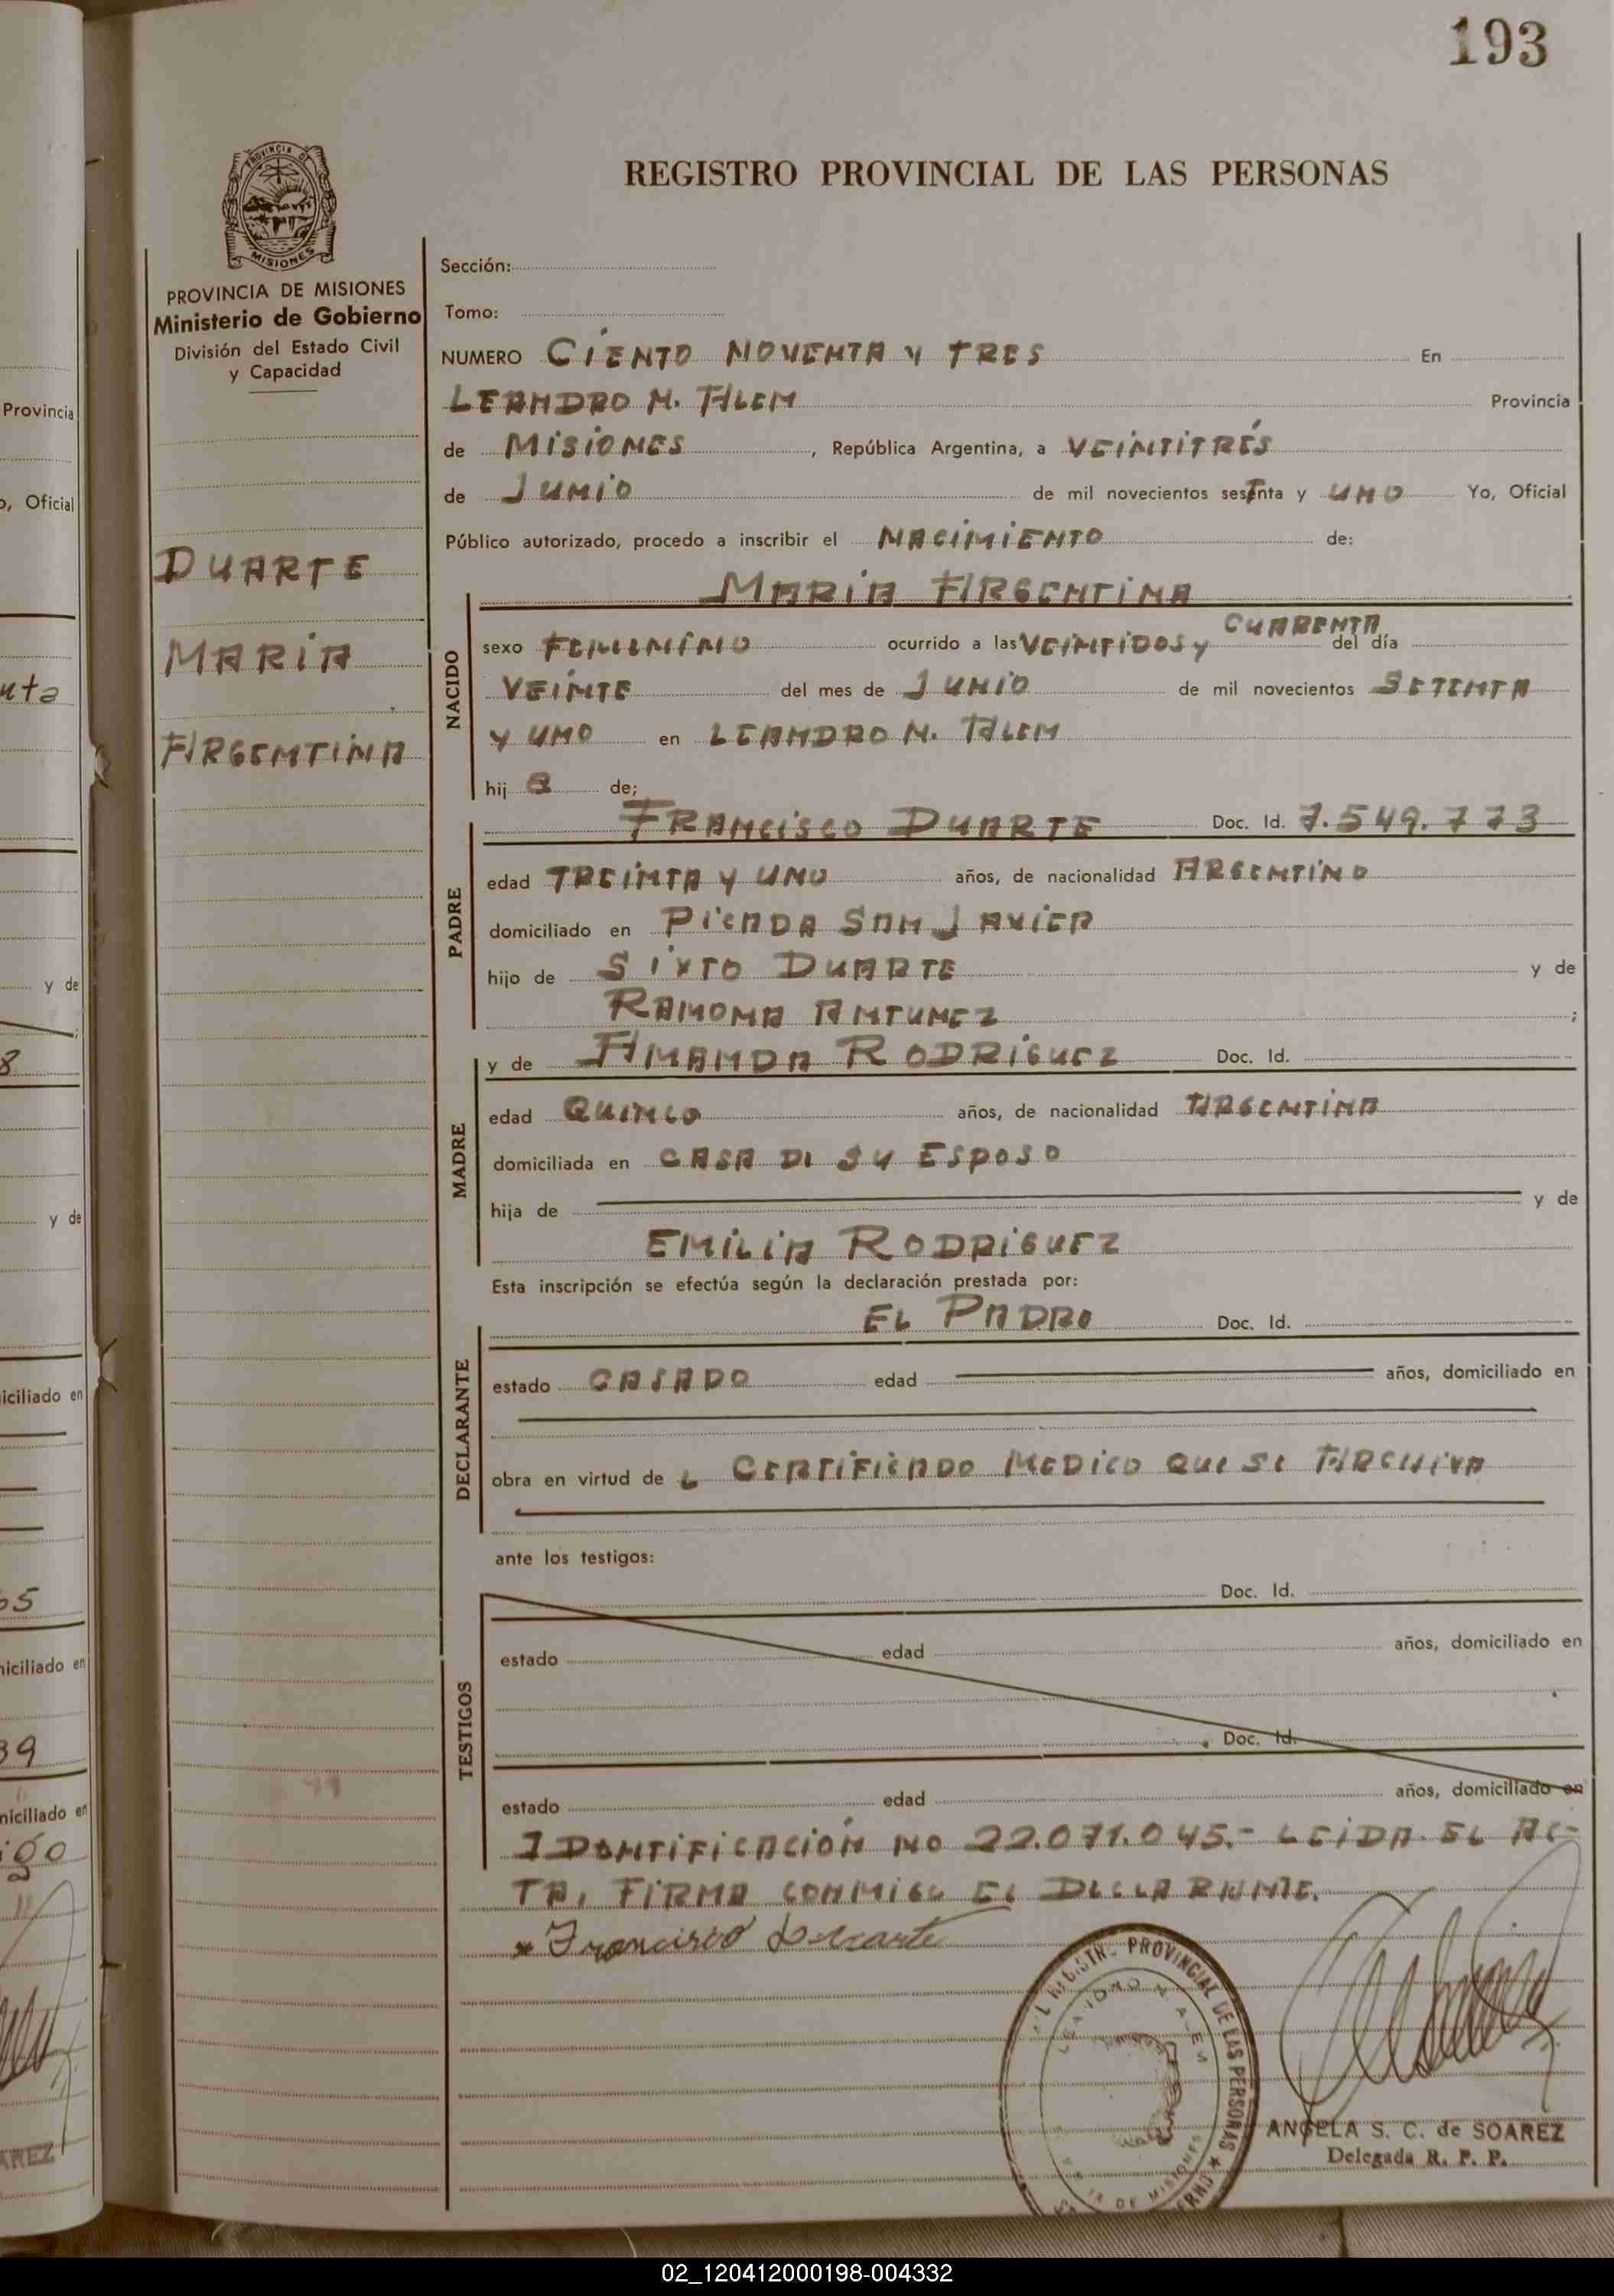 193
PROVINCIA DE MISIONES
REGISTRO PROVINCIAL DE LAS PERSONAS
PROVINCIA DE MISIONES
Ministerio de Gobierno
División del Estado Civil
y Capacidad
DUARTE
MARIA
ARGENTINA
Sección:
Tomo:
NUMERO CIENTO NOVENTA Y TRES En
LEANDRO N. ALEM Provincia
de MISIONES , República Argentina, a VEINTITRÉS
de JUNIO de mil novecientos sesTnta y UNO Yo, Oficial
Público autorizado, procedo a inscribir el NACIMIENTO de:
MARIA ARGENTINA
NACIDO
sexo FEMENINO ocurrido a las VEINTIDOS y CUARENTA del día
VEINTE del mes de JUNIO de mil novecientos SETENTA
Y UNO en LEANDRO N. ALEM
hij a de;
PADRE
FRANCISCO DUARTE Doc. Id. 7.549.773
edad TREINTA Y UNO años, de nacionalidad ARGENTINO
domiciliado en PICADA SAN JAVIER
hijo de SIXTO DUARTE y de
RAMONA ANTUNEZ ;
MADRE
y de AMANDA RODRIGUEZ Doc. Id.
edad años, de nacionalidad ARGENTINA
domiciliada en CASA DE SU ESPOSO
hija de y de
EMILIA RODRIGUEZ
Esta inscripción se efectúa según la declaración prestada por:
DECLARANTE
EL PADRE Doc. Id.
estado CASADO edad años, domiciliado en
obra en virtud de L CERTIFICADO MEDICO QUE SE ARCHIVA
ante los testigos:
TESTIGOS
Doc. Id.
estado edad años, domiciliado en
Doc. Id.
estado edad años, domiciliado en
IDENTIFICACIÓN NO 22.071.045.- LEIDA EL AC-
TA, FIRMA CONMIGO EL DECLARANTE.
Francisco Duarte
PROVINCIAL DE LAS PERSONAS
LEANDRO N. ALEM
DE MISIONES
ANGELA S. C. de SOAREZ
Delegada R. P. P.
Provincia
o, Oficial
nta
y de
8
y de
iciliado en
65
niciliado en
39
niciliado en
igo
AREZ
02_120412000198-004332